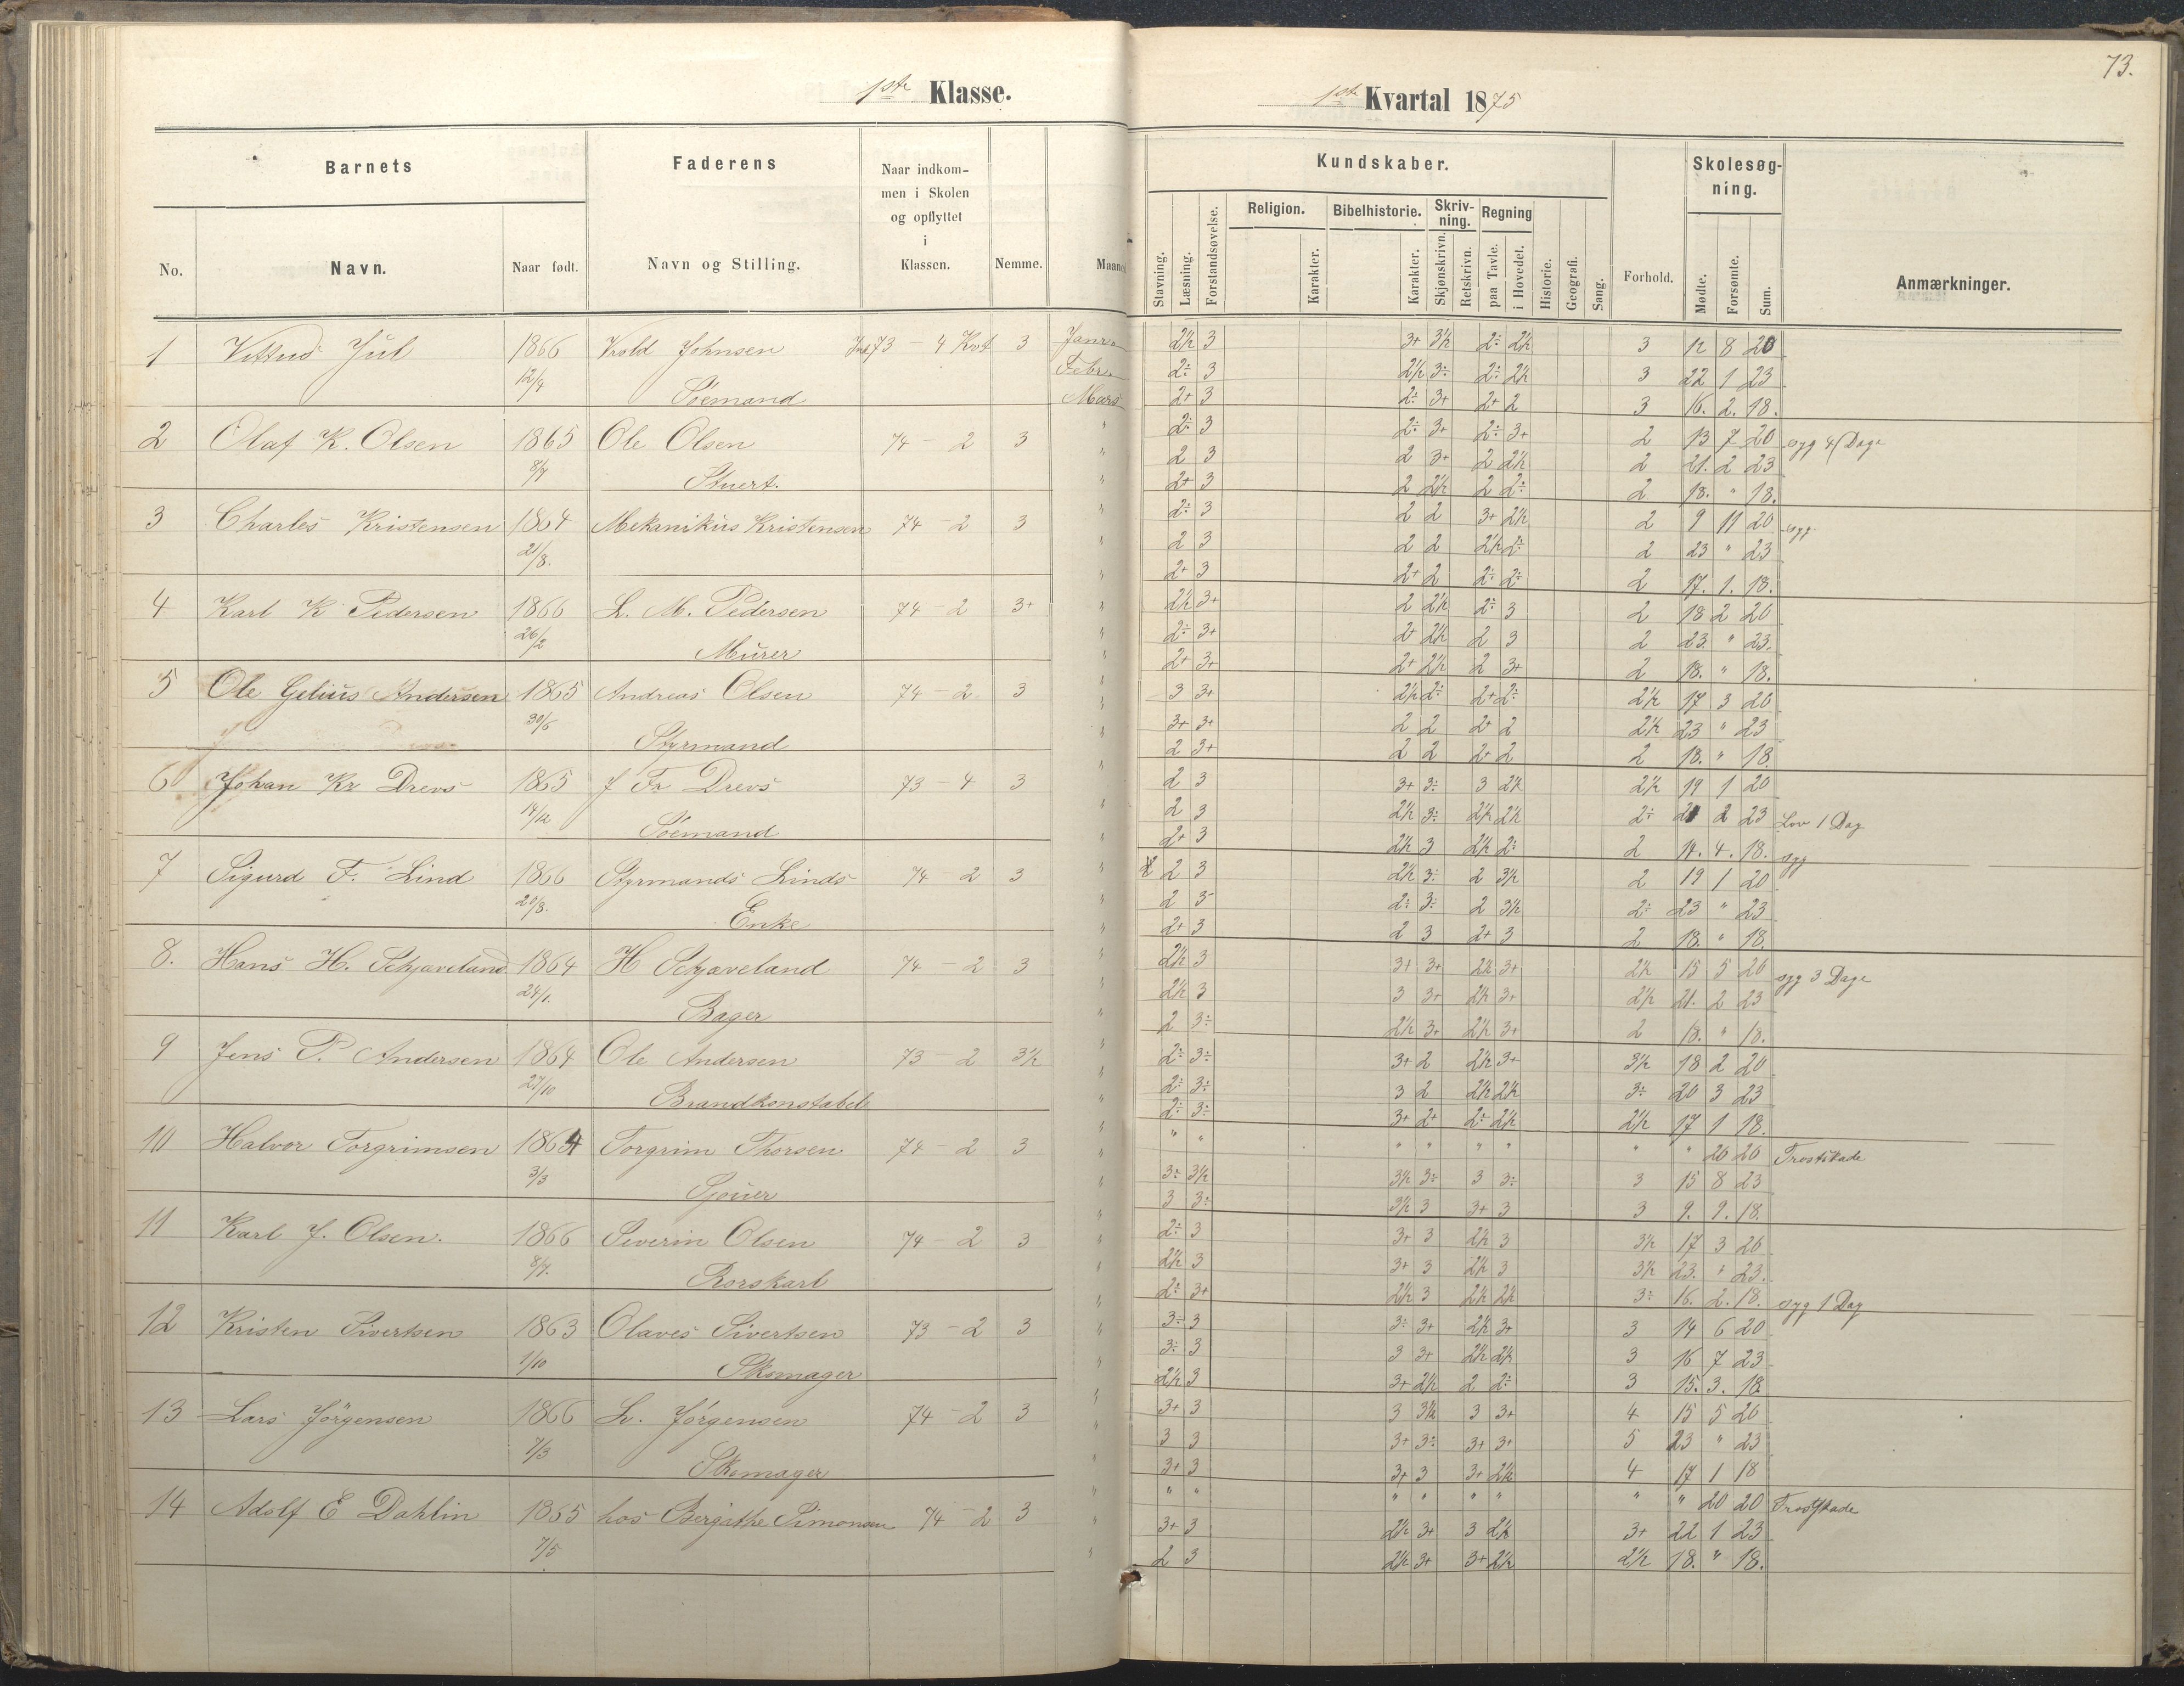 73.
1ste Klasse.
1ste Kvartal 1875
Barnets
Faderens
Naar indkommen i Skolen og opflyttet i Klassen.
Nemme.
No.
Navn.
Naar født.
Navn og Stilling.
Kundskaber.
Stavning.
Læsning.
Forstandsøvelse.
Religion.
Karakter.
Bibelhistorie.
Karakter.
Skrivning.
Skjønskrivn.
Retskrivn.
Regning
paa Tavle.
i Hovedet.
Historie.
Geografi.
Sang.
Forhold.
Skolesøgning.
Mødte.
Forsømte.
Sum.
Anmærkninger.
1 Jul 1866 12/4 Johnsen 73 - 4 Kvt 3
Søemand
Janr 2½ 3 3+ 3½ 2÷ 2½ 3 12 8 20
Febr 2÷ 3 2½ 3÷ 2÷ 2½ 3 22 1 23
Mars 2+ 3 2÷ 3+ 2+ 2 3 16. 2. 18.
2 Olaf K. Olsen 1865 8/4 Ole Olsen 74 - 2 3
Stuert.
2÷ 3 2÷ 3+ 2÷ 3+ 2 13 7 20 syg 4 Dage
2 3 2 3+ 2 2½ 2 21. 2 23
2+ 3 2 2½ 2 2÷ 2 18. " 18.
3 Charles Kristensen 1864 21/8. Mekanikus Kristensen 74 - 2 3
2÷ 3 2 2 3+ 2½ 2 9 11 20 syg.
2 3 2 2 2½ 2÷ 2 23 " 23
2+ 3 2+ 2 2÷ 2÷ 2 17. 1. 18.
4 Karl K Pedersen 1866 26/2 L. M. Pedersen 74 - 2 3+
Murer
2½ 3+ 2 2½ 2÷ 3 2 18 2 20
2÷ 3+ 2+ 2½ 2 3 2 23. " 23.
2+ 3+ 2+ 2½ 2 3+ 2 18. " 18.
5 Ole Gelius Andersen 1865 30/6 Andreas Olsen 74 - 2 3
Styrmand
3 3+ 2½ 2÷ 2+ 2÷ 2½ 17 3 20
3+ 3+ 2 2 2+ 2 2½ 23 " 23
2 3+ 2 2 2+ 2 2 18. " 18.
6 Johan Kr Drevs 1865 14/12 J Fr Drevs 73 - 4 3
Søemand
2 3 3+ 3÷ 3 2½ 2½ 19 1 20
2 3 2½ 3÷ 2½ 2½ 2÷ 21 2 23 Lov 1 Dag
2+ 3 2½ 3 2½ 2÷ 2 14. 4. 18. syg
7 Sigurd F. Lind 1866 20/8. Styrmands Linds 74 - 2 3
Enke
2 3 2½ 3÷ 2 3½ 2 19 1 20
2 3- 2÷ 3÷ 2 3½ 2÷ 23 " 23
2+ 3 2 3 2+ 3 2 18. " 18.
8. Hans H. Schjaveland 1864 24/1. H Schjaveland 74 - 2 3
Bager
2½ 3 3+ 3+ 2½ 3+ 2½ 15 5 20 syg 3 Dage
2½ 3 3 3+ 2½ 3+ 2½ 21. 2 23
2 3÷ 2½ 3+ 2½ 3+ 2 18. " 18.
9 Jens P. Andersen 1864 27/10 Ole Andersen 73 - 2 3½
Brandkonstabel
2÷ 3÷ 3+ 2 2½ 3+ 3½ 18 2 20
2÷ 3÷ 3 2 2½ 2½ 3÷ 20 3 23
2÷ 3÷ 3+ 2+ 2÷ 2½ 2½ 17 1 18.
10 Halvor Torgrimsen 1864 3/3 Torgrim Thorsen 74 - 2 3
Sjouer
" " " " " " " " 20 20 Frostskade
3÷ 3½ 3½ 3÷ 3 3÷ 3 15 8 23
3 3÷ 3½ 3 3+ 3 3 9. 9. 18.
11 Karl J. Olsen. 1866 8/4. Severin Olsen 74 - 2 3
Rorskarl
2÷ 3 3+ 3 2½ 3 3½ 17 3 20
2½ 3 3+ 3 2½ 3 3½ 23. " 23.
2÷ 3+ 2½ 3 2½ 2½ 3÷ 16. 2. 18. syg 1 Dag
12 Kristen Sivertsen 1863 1/10 Olaves Sivertsen 73 - 2 3
Skomager
3÷ 3 3÷ 3+ 2½ 3+ 3 14 6 20
3÷ 3 3 3+ 2½ 2½ 3 16 7 23
2½ 3 3+ 2½ 2 2÷ 3 15. 3. 18
13 Lars Jörgensen 1866 7/3 L. Jørgensen 74 - 2 3
Skomager
3+ 3 3 3½ 3 3+ 4 15 5 20
3 3 3+ 3÷ 3+ 3+ 5 23 " 23
3+ 3 3+ 3 3+ 2½ 4 17 1 18
14 Adolf E Dahlin 1865 7/5 hos Bergithe Simonsen 74 - 2 3
" " " " " " " " 20 20 Frostskade
3+ 3 2½ 3+ 3 2½ 3+ 22 1 23
2 3 2½ 3+ 3+ 2½ 2½ 18. " 18.